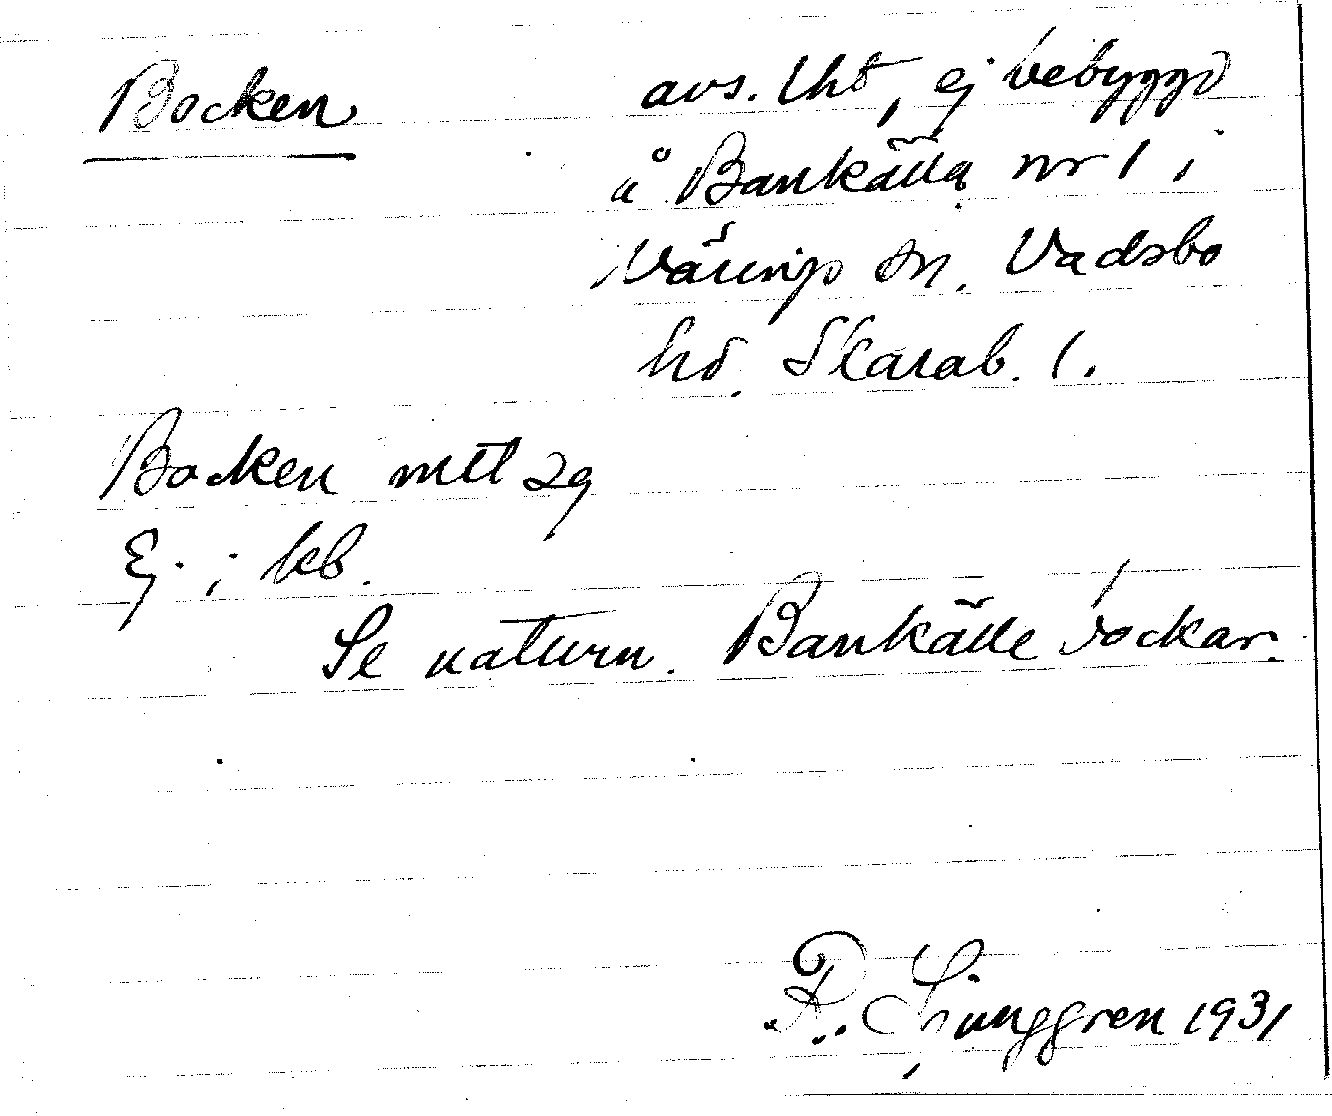 Bocken avs. lht, ej bebyggd
å Bankälla nr 1 i
Väring sn. Vadsbo
hd. Skarab. l.
Bocken mtl 29
Ej i kb.
Se naturn. Bankälle bockar.
R. Ljunggren 1931